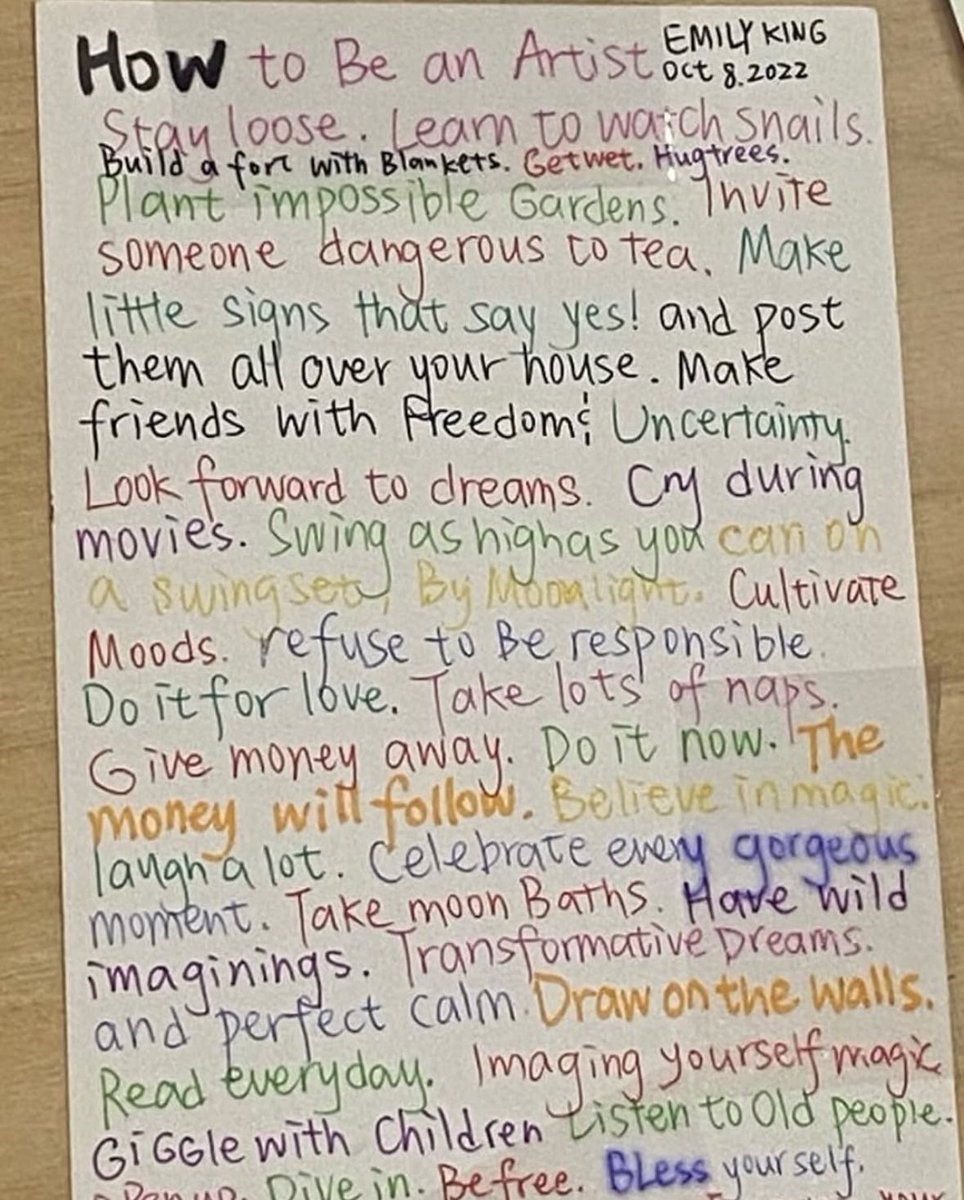 How to Be an Artist EMILY KING
Oct 8.2022
Stay loose. Learn to watch snails.
Build a fort with Blankets. Get wet. Hug trees.
Plant impossible Gardens. Invite
someone dangerous to tea. Make
little signs that say yes! and post
them all over your house. Make
friends with Freedom & Uncertainty.
Look forward to dreams. Cry during
movies. Swing as high as you can on
a swingset, By Moonlight. Cultivate
Moods. refuse to Be responsible.
Do it for love. Take lots of naps.
Give money away. Do it now. The
money will follow. Believe in magic.
laugh a lot. Celebrate every gorgeous
moment. Take moon Baths. Have wild
imaginings. Transformative Dreams.
and perfect calm. Draw on the walls.
Read everyday. Imaging yourself magic
Giggle with Children Listen to Old people.
Dive in. Be free. Bless yourself.